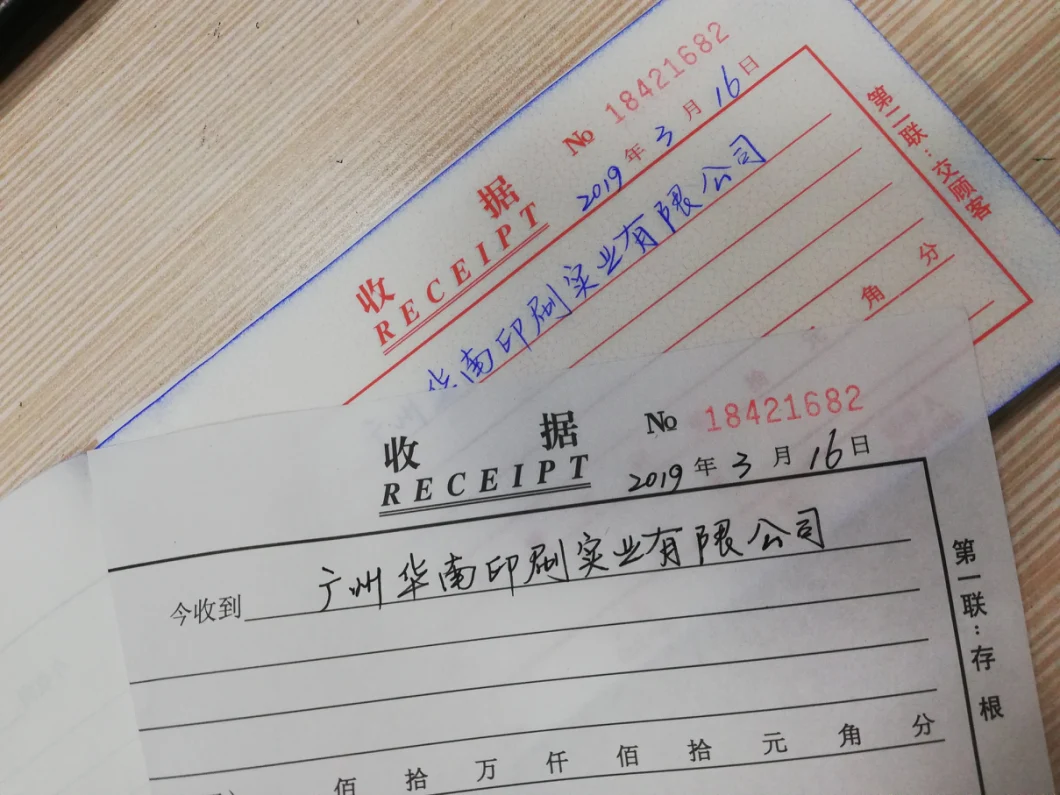 No 18421682
收 据
RECEIPT
2019年3月16日
华南印刷实业有限公司
角 分
第二联：交顾客
收 据
No 18421682
RECEIPT
2019年3月16日
今收到 广州华南印刷实业有限公司
佰 拾 万 仟 佰 拾 元 角 分
第一联：存根